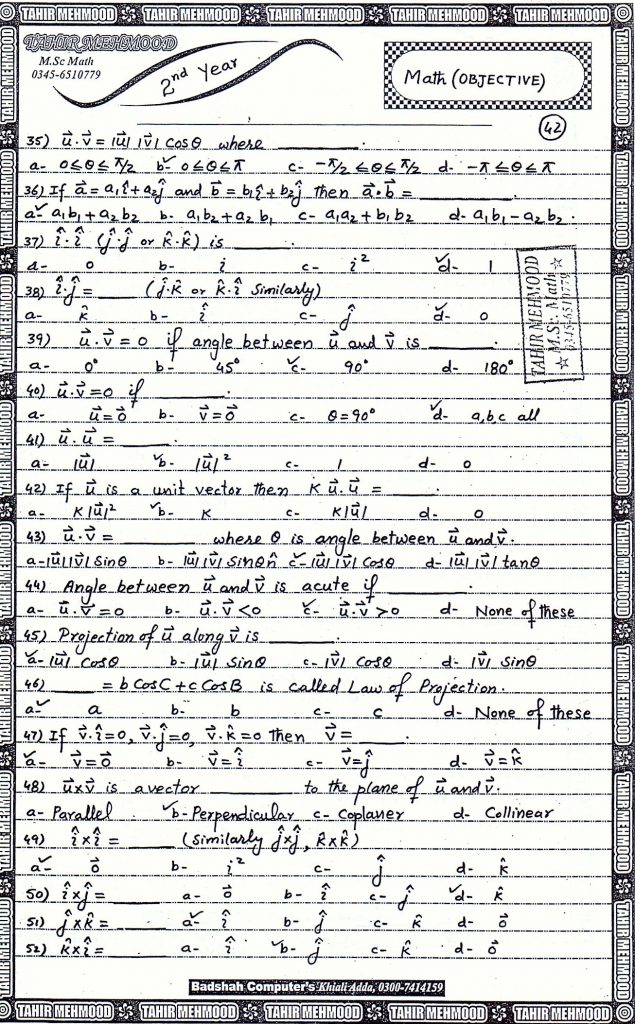 TAHIR MEHMOOD TAHIR MEHMOOD TAHIR MEHMOOD TAHIR MEHMOOD TAHIR MEHMOOD
TAHIR MEHMOOD
M.Sc Math
0345-6510779
2nd Year
Math (OBJECTIVE)
42
35) u⃗.v⃗ = |u⃗| |v⃗| Cosθ where ______
a- 0≤θ≤π/2 ✓b- 0≤θ≤π c- -π/2≤θ≤π/2 d- -π≤θ≤π
36) If a⃗ = a₁î+a₂ĵ and b⃗ = b₁î+b₂ĵ then a⃗.b⃗ = ______
✓a- a₁b₁+a₂b₂ b- a₁b₂+a₂b₁ c- a₁a₂+b₁b₂ d- a₁b₁-a₂b₂.
37) î.î (ĵ.ĵ or k̂.k̂) is ______.
a- 0 b- i c- i² ✓d- 1
38) î.ĵ = ___ (ĵ.k̂ or k̂.î Similarly)
a- k̂ b- î c- ĵ ✓d- 0
39) u⃗.v⃗ = 0 if angle between u⃗ and v⃗ is ______.
a- 0° b- 45° ✓c- 90° d- 180°
40) u⃗.v⃗=0 if ______.
a- u⃗=0⃗ b- v⃗=0⃗ c- θ=90° ✓d- a,b,c all
41) u⃗.u⃗ = ____.
a- |u⃗| ✓b- |u⃗|² c- 1 d- 0
42) If u⃗ is a unit vector then K u⃗.u⃗ = ____.
a- K|u⃗|² ✓b- K c- K|u⃗| d- 0
43) u⃗.v⃗ = ______ where θ is angle between u⃗ and v⃗.
a- |u⃗||v⃗| Sinθ b- |u⃗||v⃗| Sinθn̂ ✓c- |u⃗||v⃗| Cosθ d- |u⃗||v⃗| tanθ
44) Angle between u⃗ and v⃗ is acute if ______.
a- u⃗.v⃗=0 b- u⃗.v⃗<0 ✓c- u⃗.v⃗>0 d- None of these
45) Projection of u⃗ along v⃗ is ______.
✓a- |u⃗| Cosθ b- |u⃗| Sinθ c- |v⃗| Cosθ d- |v⃗| Sinθ
46) ____ = b CosC + c CosB is called Law of Projection.
✓a- a b- b c- c d- None of these
47) If v⃗.î=0, v⃗.ĵ=0, v⃗.k̂=0 then v⃗= ____.
✓a- v⃗=0⃗ b- v⃗=î c- v⃗=ĵ d- v⃗=k̂
48) u⃗xv⃗ is a vector ______ to the plane of u⃗ and v⃗.
a- Parallel ✓b- Perpendicular c- Coplaner d- Collinear
49) îxî = ____ (Similarly ĵxĵ, k̂xk̂)
✓a- 0⃗ b- i² c- ĵ d- k̂
50) îxĵ = ____ a- 0⃗ b- î c- ĵ ✓d- k̂
51) ĵxk̂ = ____ ✓a- î b- ĵ c- k̂ d- 0⃗
52) k̂xî = ____ a- î ✓b- ĵ c- k̂ d- 0⃗
TAHIR MEHMOOD
☆ M.Sc. Math ☆
0345-6510779
Badshah Computer's Khiali Adda, 0300-7414159
TAHIR MEHMOOD TAHIR MEHMOOD TAHIR MEHMOOD TAHIR MEHMOOD TAHIR MEHMOOD